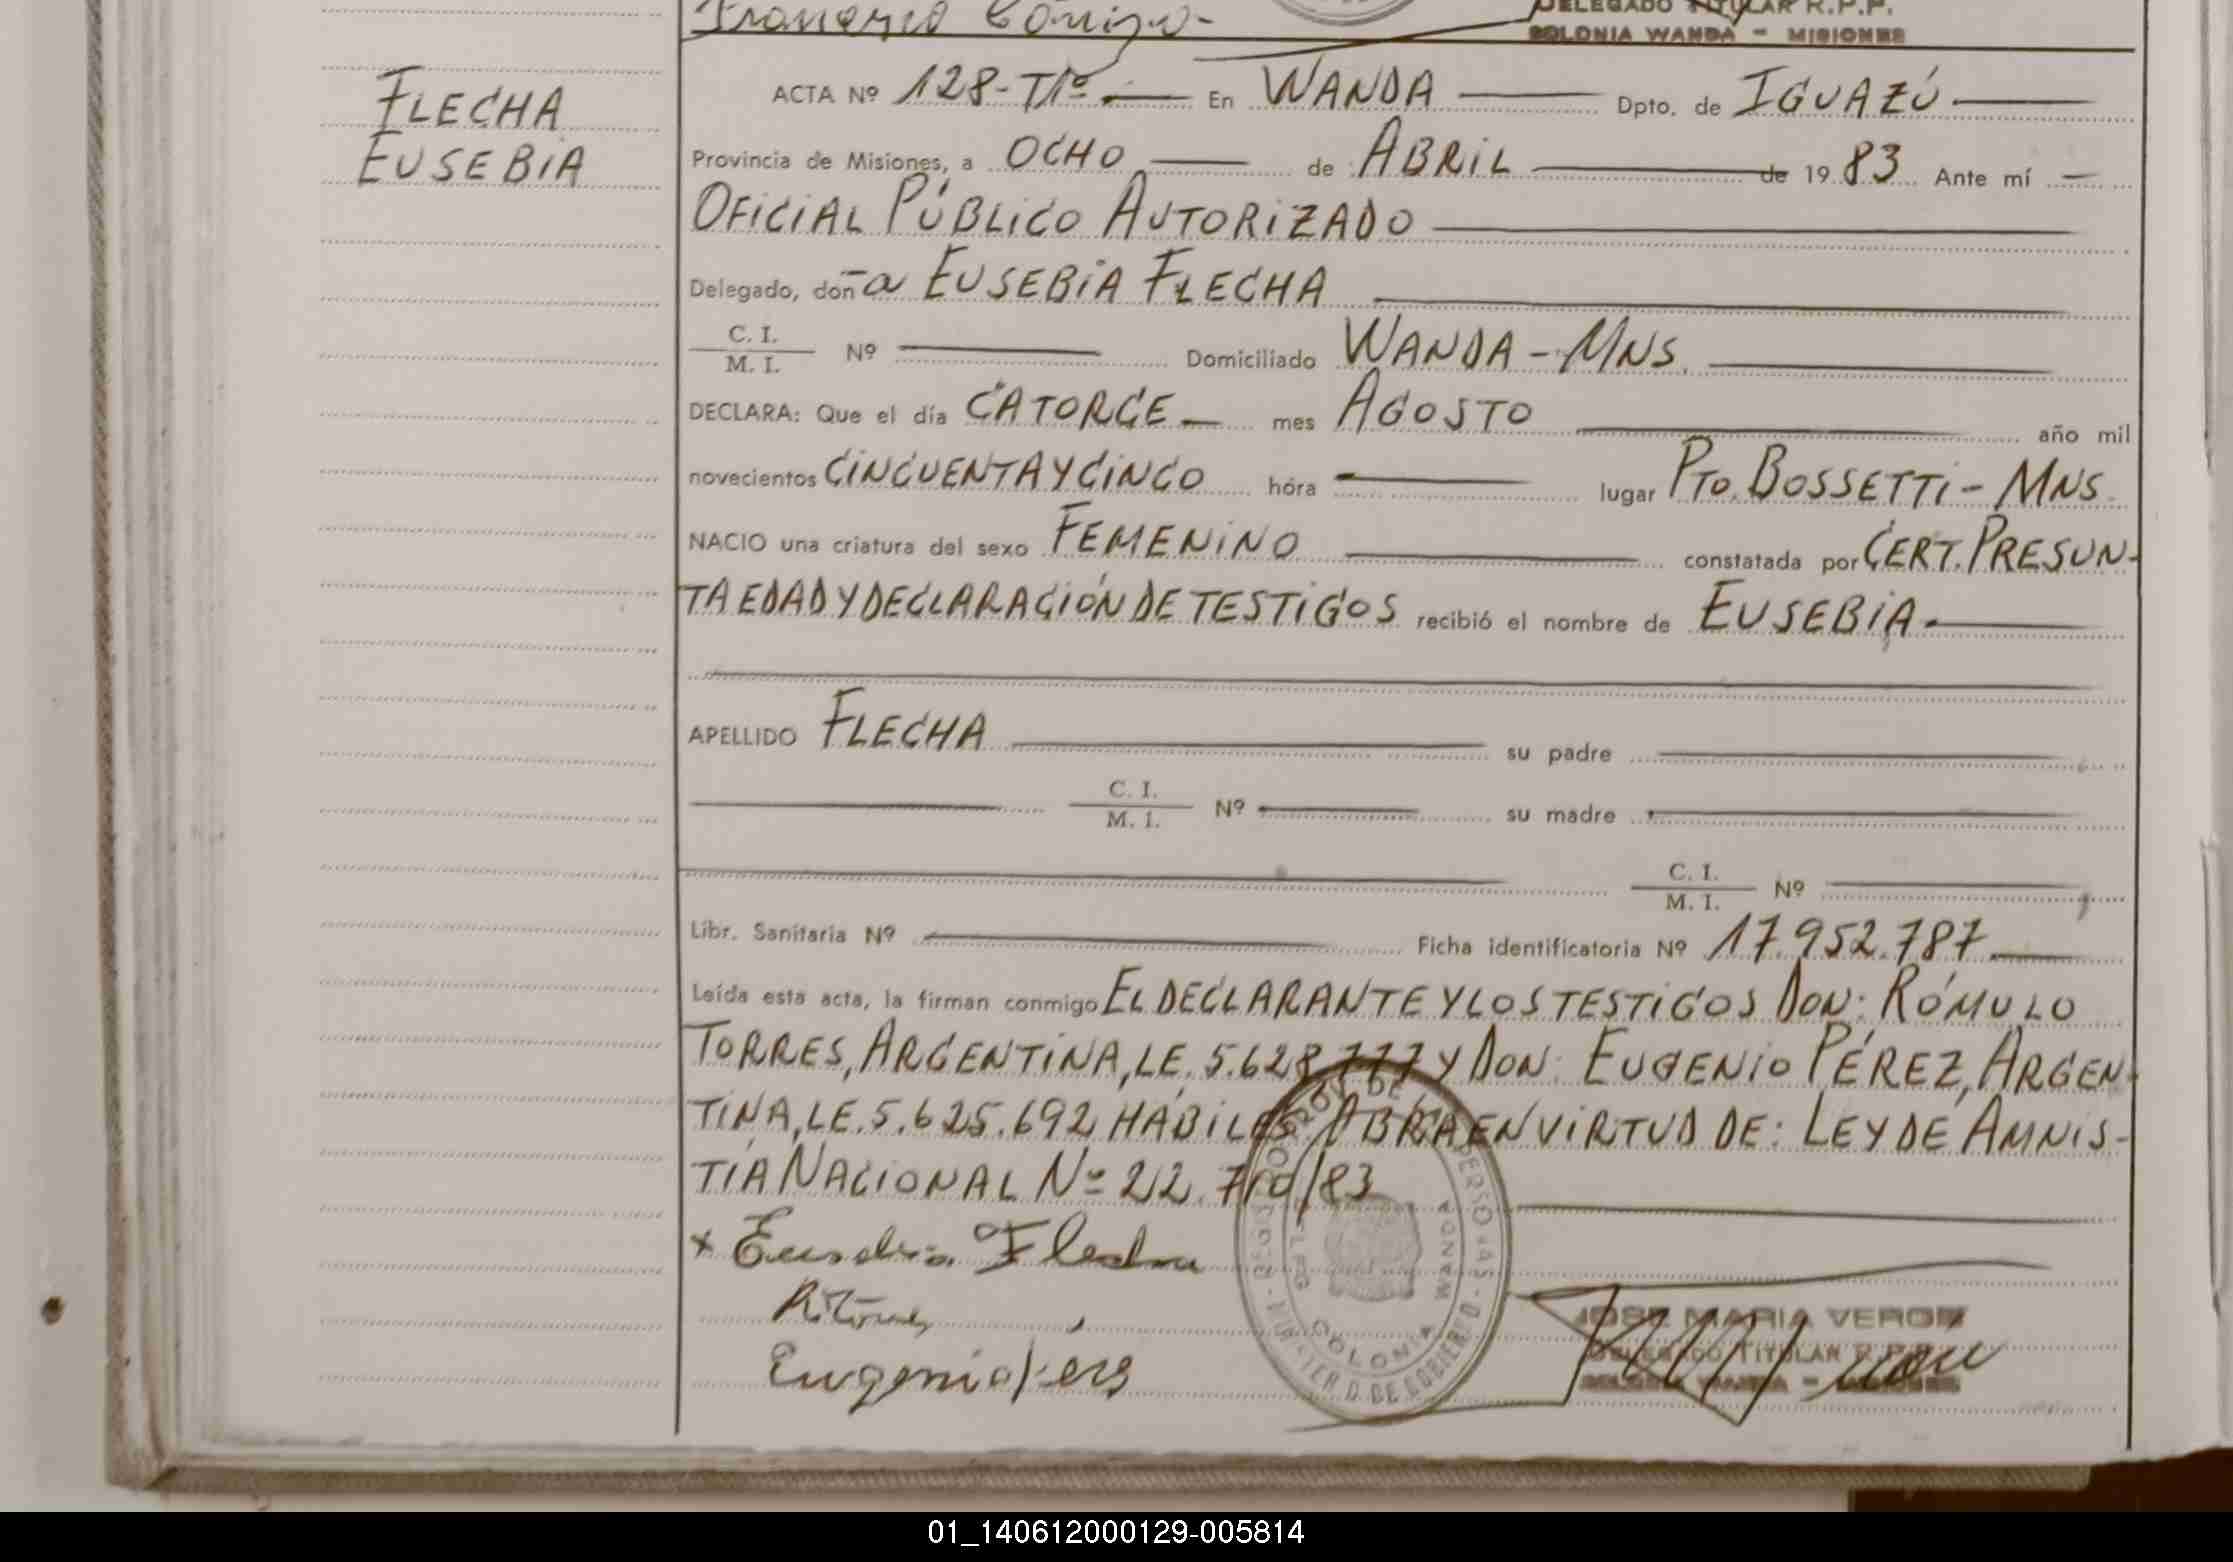 DELEGADO TITULAR R.P.P.
COLONIA WANDA - MISIONES
FLECHA
EUSEBIA
ACTA Nº 128-Tº1º En WANDA Dpto. de IGUAZÚ
Provincia de Misiones, a OCHO de ABRIL de 1983 Ante mí
OFICIAL PÚBLICO AUTORIZADO
Delegado, doña EUSEBIA FLECHA
C. I.
M. I. Nº Domiciliado WANDA - MNS.
DECLARA: Que el día CATORCE mes AGOSTO año mil
novecientos CINCUENTA Y CINCO hora lugar PTO. BOSSETTI - MNS.
NACIO una criatura del sexo FEMENINO constatada por CERT. PRESUN-
TA EDAD Y DECLARACIÓN DE TESTIGOS recibió el nombre de EUSEBIA
APELLIDO FLECHA su padre
C. I.
M. I. Nº su madre
C. I.
M. I. Nº
Libr. Sanitaria Nº Ficha identificatoria Nº 17.952.787
Leída esta acta, la firman conmigo EL DECLARANTE Y LOS TESTIGOS DON: RÓMULO
TORRES, ARGENTINA, L.E. 5.628.777 Y DON: EUGENIO PÉREZ, ARGEN-
TINA, L.E. 5.625.692 HÁBILES. OBRA EN VIRTUD DE: LEY DE AMNIS-
TÍA NACIONAL Nº 22.710/83
x Eusebia Flecha
Eugenio Peres
JOSE MARIA VERON
DELEGADO TITULAR R.P.P.
COLONIA WANDA - MISIONES
COLONIA WANDA
01_140612000129-005814